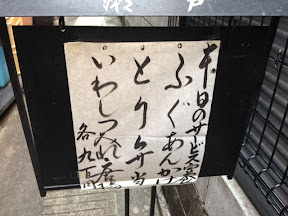 本日のサービス定食
ふぐあんかけ
とり弁当
いわしつみれ
各九百円